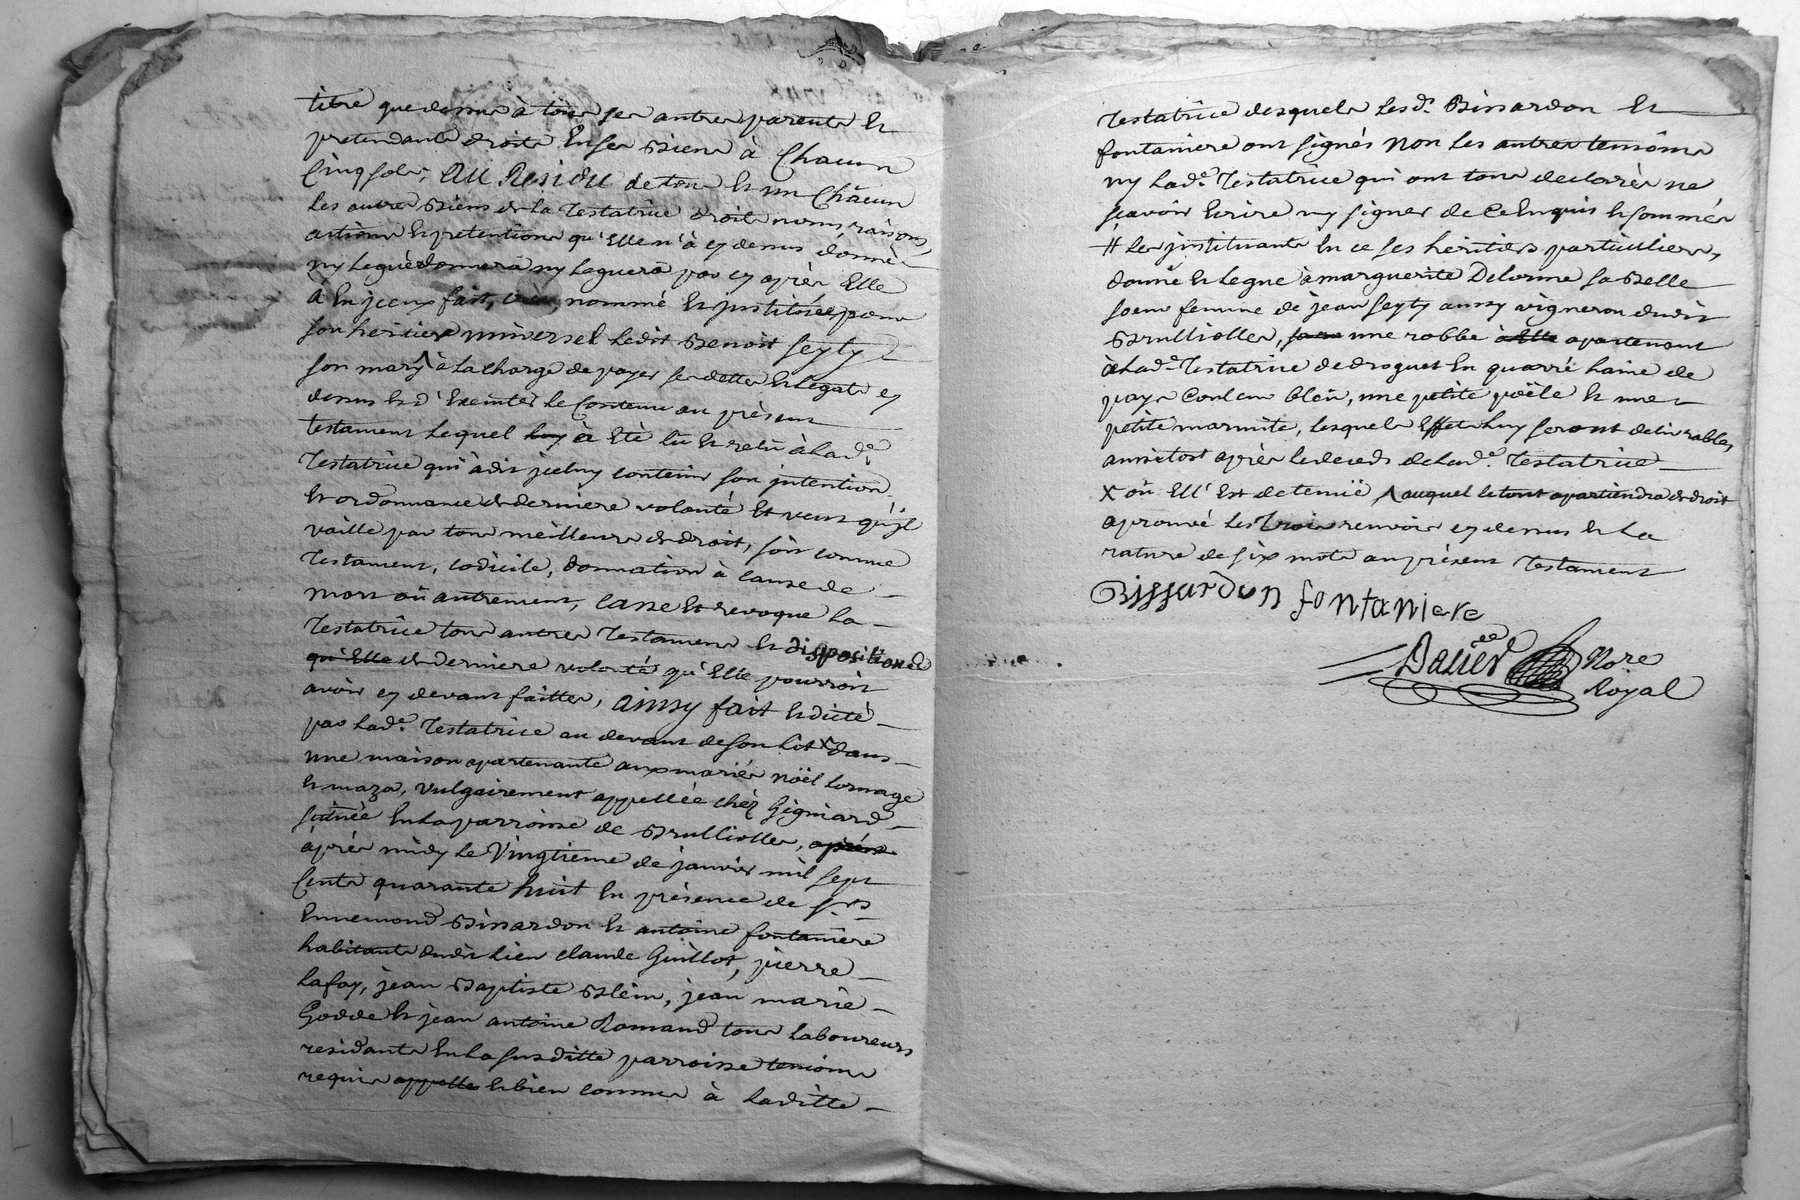 titre que dessus à tous ses autres parents Et
pretendants droits En ses Biens à Chacun
Cinq sols, AU Residu de tous Et un Chacun
Les autres Biens de La Testatrice droits noms, raisons,
actions Et pretentions qu'Elle n'à cy dessus donné
ny Legué donnera ny Leguera par cy après Elle
à En jceux fait, créé, nommé Et jnstitué pour
son heritier universel Ledit Benoit Seyty
son mary ^ à La charge de payer ses dettes Et Legats cy
dessus Et d'Executer Le Contenu au présent
Testament Lequel luy à Eté Lû Et relû à Lad.e
Testatrice qui à dit jceluy contenir son jntention
Et ordonnance de derniere volonté Et veut qu'jl
vaille par tous meilleurs de droit, soit comme
Testament, codicile, donnation à cause de
mort oû autrement, Casse Et revoque La
Testatrice tous autres Testaments Et dispositions de
qu'Elle de derniere volonté qu'Elle pourroit
avoir cy devant faittes, Ainsy fait Et dicté
par Lad.e Testatrice au devant de son Lit x dans
une maison apartenante aux mariés noël Lornage
Et maza, vulgairement appellée chéz Gigniard
située En La parroisse de Brulliolles, après
après midy Le Vingtieme de janvier mil sept
Cents quarante huit En présence de Srs
Ennemond Bissardon Et antoine fontaniere
habitants dudit Lieu claude Guillot, pierre
Lafay, jean Baptiste Blein, jean marie
Godde Et jean antoine Romand tous Laboureurs
residants En La susditte parroisse temoins
requis appellés Et bien connus à Laditte
Testatrice desquels Lesd. Bissardon Et
fontaniere ont signés non Les autres temoins
ny Lad.e Testatrice qui ont tous declarés ne
sçavoir Ecrire ny signer de ce Enquis Et sommés
# Les jnstituants En ce ses heritiers particuliers,
donne Et Legue à marguerite Delorme sa Belle
soeur femme de jean Seyty aussy vigneron dudit
Brulliolles, une robbe à elle apartenant
à Lad.e Testatrice de droguet En quarré Laine de
pays Couleur bleü, une petite poële Et une
petite marmite, Lesquels Effets luy seront delivrables,
aussitost après Le deceds de Lad.e Testatrice
x oû Ell'Est detenuë ^ auquel Le tout apartiendra de droit
aprouvé Les Trois renvois cy dessus Et La
rature de six mots au présent Testament
Bissardon fontaniere
Dalier Nore
Royal